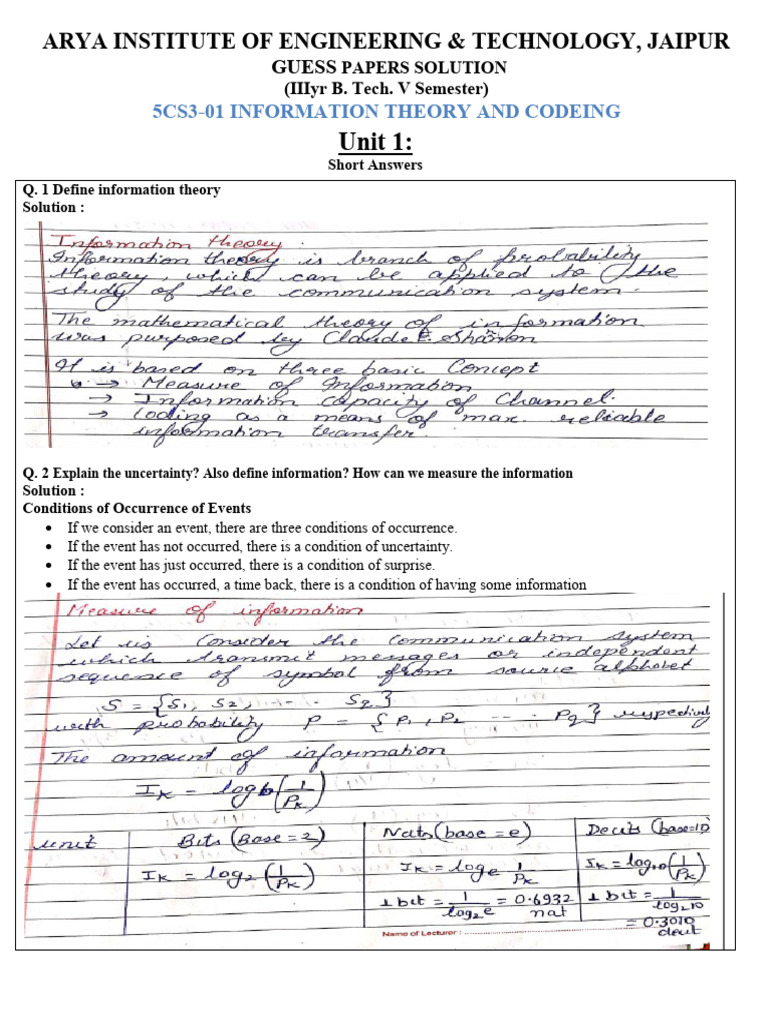 ARYA INSTITUTE OF ENGINEERING & TECHNOLOGY, JAIPUR
GUESS PAPERS SOLUTION
(IIIyr B. Tech. V Semester)
5CS3-01 INFORMATION THEORY AND CODEING
Unit 1:
Short Answers
Q. 1 Define information theory
Solution :
Information theory :
Information theory is branch of probability
theory, which can be applied to the
study of the communication system.
The mathematical theory of information
was purposed by Claude E. Shannon
It is based on three basic Concept
→ Measure of Information
→ Information capacity of Channel.
→ Coding as a means of max. reliable
information transfer.
Q. 2 Explain the uncertainty? Also define information? How can we measure the information
Solution :
Conditions of Occurrence of Events
• If we consider an event, there are three conditions of occurrence.
• If the event has not occurred, there is a condition of uncertainty.
• If the event has just occurred, there is a condition of surprise.
• If the event has occurred, a time back, there is a condition of having some information
Measure of information
Let us Consider the communication system
which transmit messages or independent
sequence of symbol from source alphabet
S = {S1, S2, ---- Sq}
with probability P = {P1, P2 --- Pq} respectively
The amount of information
IK = logb(1/PK)
unit Bits (Base = 2) Nats (base = e) Decits (base=10)
IK = log2(1/PK) IK = loge 1/PK IK = log10(1/PK)
1 bit = 1/log2e = 0.6932 nat 1 bit = 1/log210
= 0.3010 decit
Name of Lecturer :